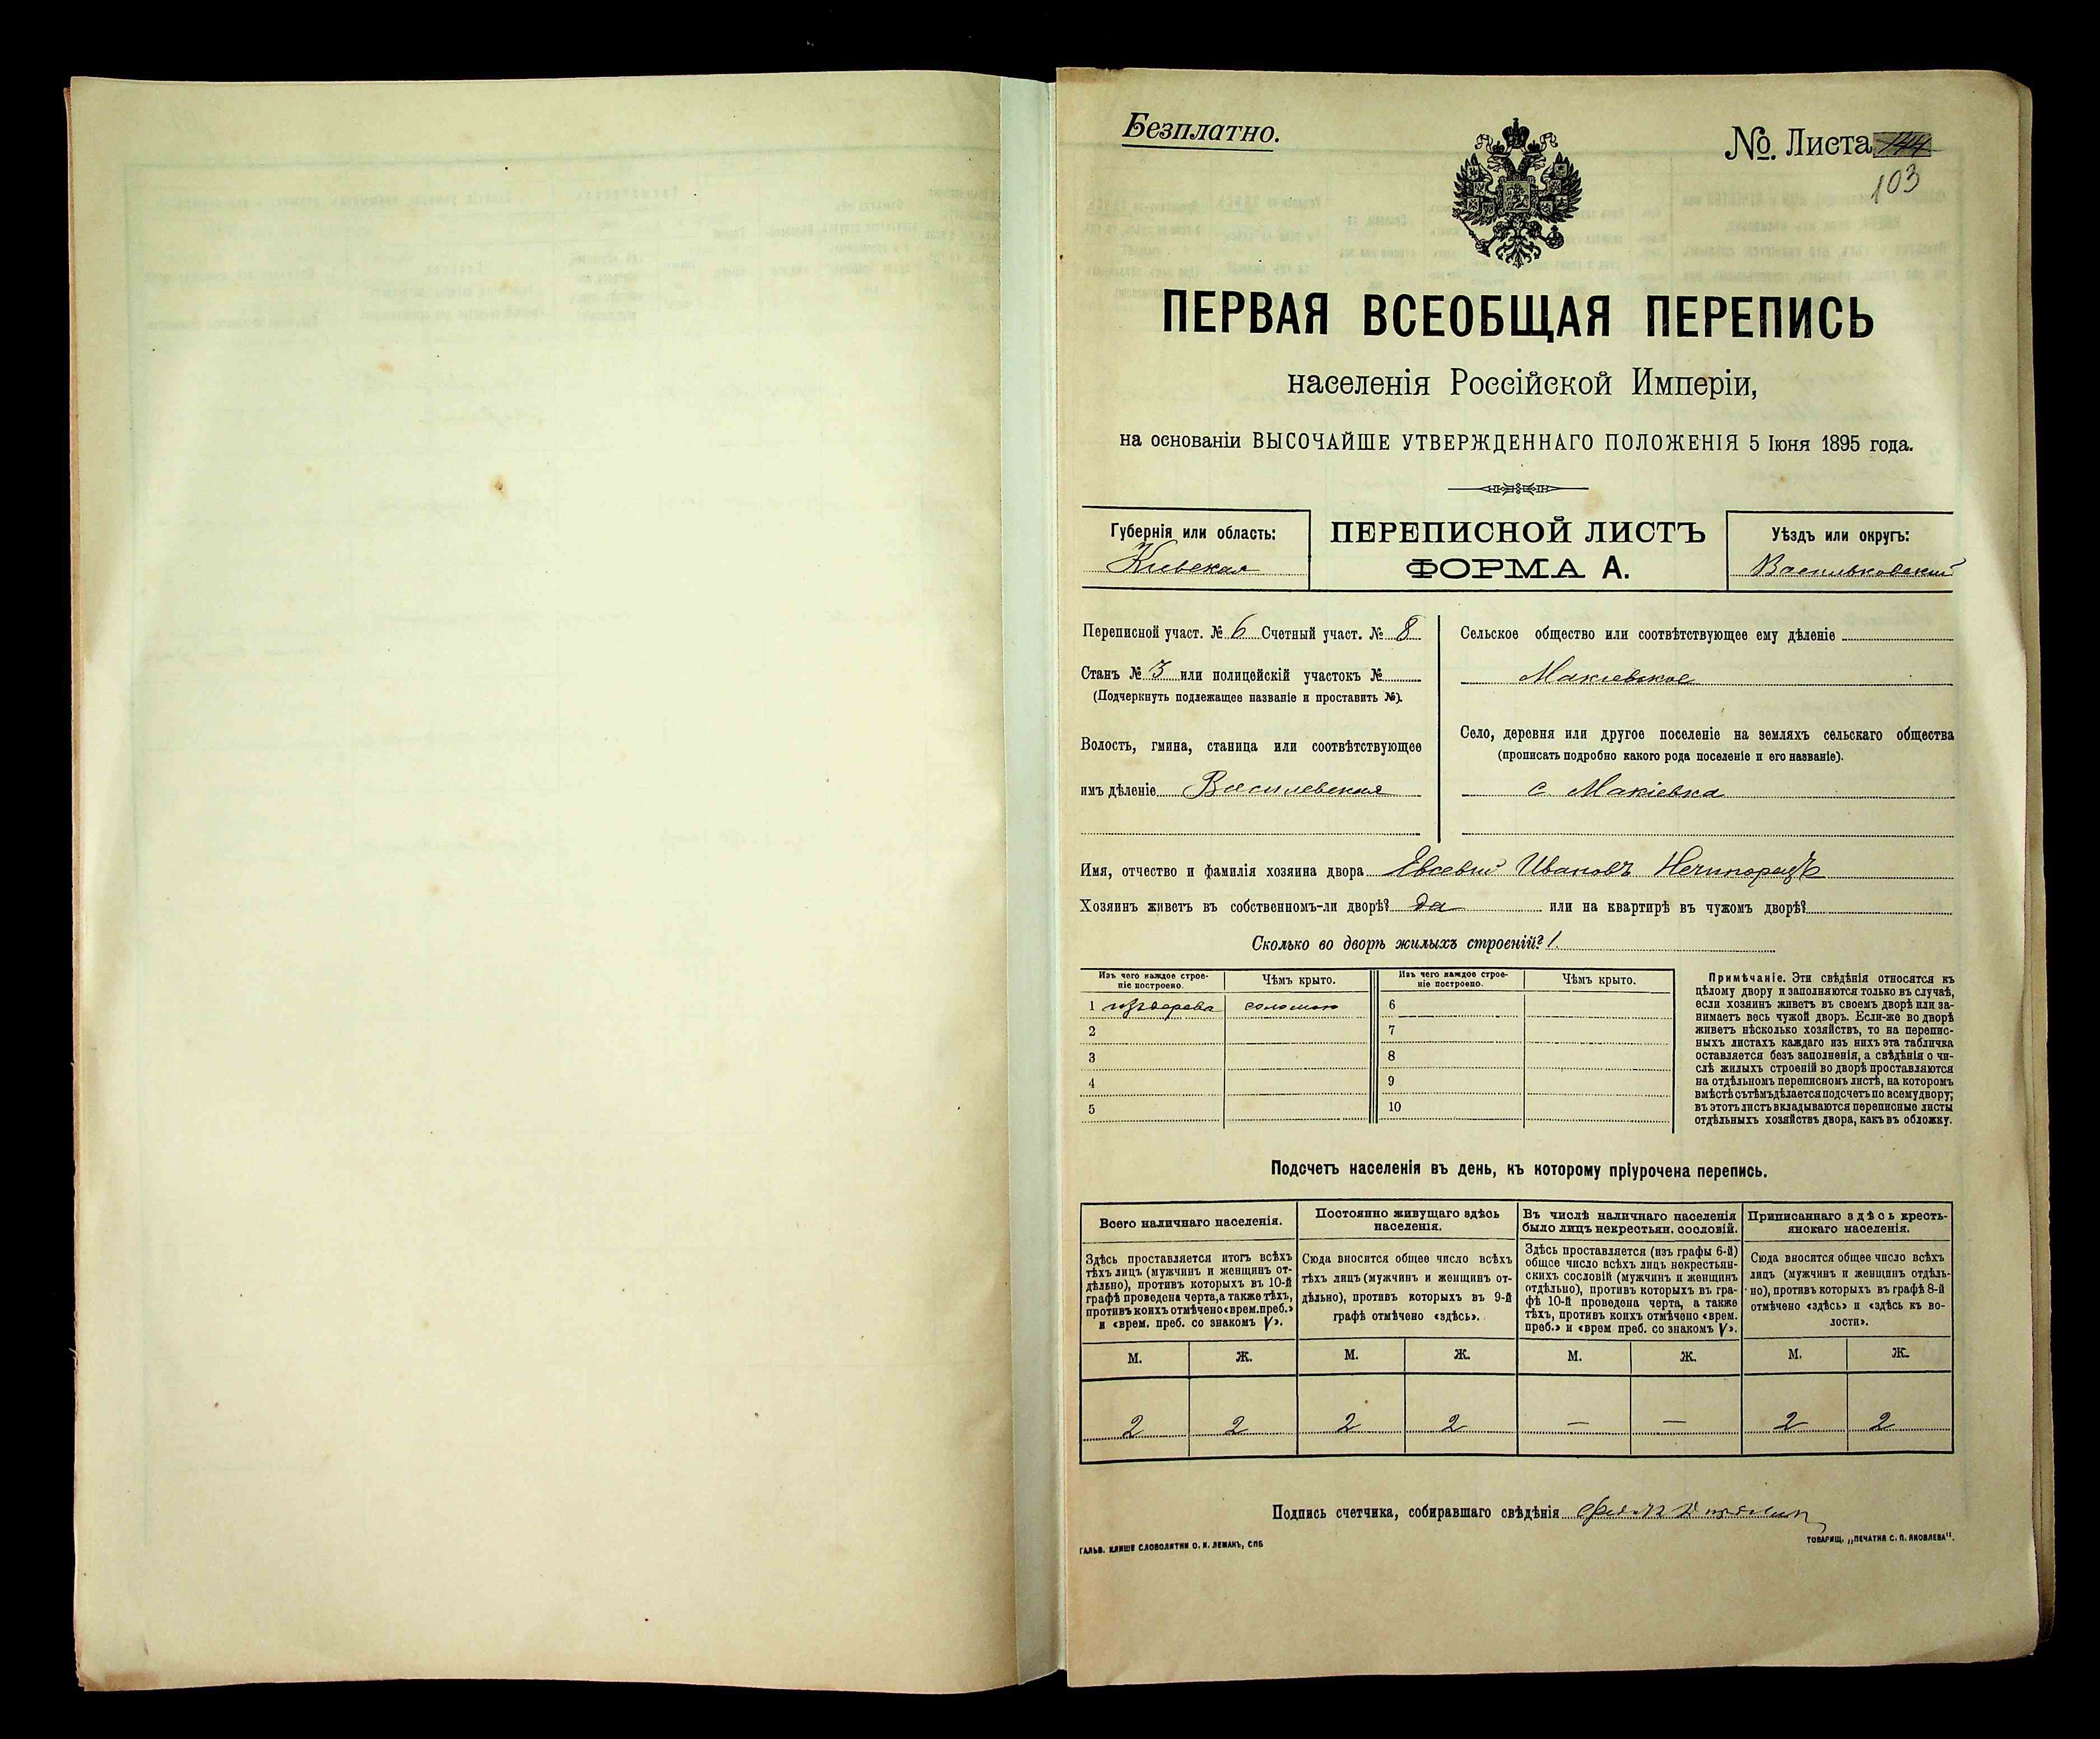 Безплатно.
№. Листа 144
103
ПЕРВАЯ ВСЕОБЩАЯ ПЕРЕПИСЬ
населенія Россійской Имперіи,
на основаніи ВЫСОЧАЙШЕ УТВЕРЖДЕННАГО ПОЛОЖЕНІЯ 5 Іюня 1895 года.
Губернія или область:
Кіевская
ПЕРЕПИСНОЙ ЛИСТЪ
ФОРМА А.
Уѣздъ или округъ:
Васильковскій
Переписной участ. № 6 Счетный участ. № 8
Станъ № 3 или полицейскій участокъ №
(Подчеркнуть подлежащее названіе и проставить №).
Волость, гмина, станица или соотвѣтствующее
имъ дѣленіе Василевская
Сельское общество или соотвѣтствующее ему дѣленіе
Макіевское
Село, деревня или другое поселеніе на земляхъ сельскаго общества
(прописать подробно какого рода поселеніе и его названіе).
с. Макіевка
Имя, отчество и фамилія хозяина двора Евсевій Ивановъ
Хозяинъ живетъ въ собственномъ-ли дворѣ? да или на квартирѣ въ чужомъ дворѣ?
Сколько во дворѣ жилыхъ строеній? 1.
Изъ чего каждое строе-
ніе построено.
Чѣмъ крыто.
Изъ чего каждое строе-
ніе построено.
Чѣмъ крыто.
1 изъ дерева соломою 6
2 7
3 8
4 9
5 10
Примѣчаніе. Эти свѣдѣнія относятся къ
цѣлому двору и заполняются только въ случаѣ,
если хозяинъ живетъ въ своемъ дворѣ или за-
нимаетъ весь чужой дворъ. Если-же во дворѣ
живетъ нѣсколько хозяйствъ, то на перепис-
ныхъ листахъ каждаго изъ нихъ эта табличка
оставляется безъ заполненія, а свѣдѣнія о чи-
слѣ жилыхъ строеній во дворѣ проставляются
на отдѣльномъ переписномъ листѣ, на которомъ
вмѣстѣ съ тѣмъ дѣлается подсчетъ по всему двору;
въ этотъ листъ вкладываются переписные листы
отдѣльныхъ хозяйствъ двора, какъ въ обложку.
Подсчетъ населенія въ день, къ которому пріурочена перепись.
Всего наличнаго населенія.
Здѣсь проставляется итогъ всѣхъ
тѣхъ лицъ (мужчинъ и женщинъ от-
дѣльно), противъ которыхъ въ 10-й
графѣ проведена черта, а также тѣхъ,
противъ коихъ отмѣчено «врем. преб.»
и «врем. преб. со знакомъ V».
Постоянно живущаго здѣсь
населенія.
Сюда вносится общее число всѣхъ
тѣхъ лицъ (мужчинъ и женщинъ от-
дѣльно), противъ которыхъ въ 9-й
графѣ отмѣчено «здѣсь».
Въ числѣ наличнаго населенія
было лицъ некрестьян. сословій.
Здѣсь проставляется (изъ графы 6-й)
общее число всѣхъ лицъ некрестьян-
скихъ сословій (мужчинъ и женщинъ
отдѣльно), противъ которыхъ въ гра-
фѣ 10-й проведена черта, а также
тѣхъ, противъ коихъ отмѣчено «врем.
преб.» и «врем преб. со знакомъ V».
Приписаннаго здѣсь кресть-
янскаго населенія.
Сюда вносится общее число всѣхъ
лицъ (мужчинъ и женщинъ отдѣль-
но), противъ которыхъ въ графѣ 8-й
отмѣчено «здѣсь» и «здѣсь къ во-
лости».
М. Ж. М. Ж. М. Ж. М. Ж.
2 2 2 2 — — 2 2
Подпись счетчика, собиравшаго свѣдѣнія
ГАЛЬВ. КЛИШЕ СЛОВОЛИТНИ О. И. ЛЕМАНЪ, СПБ
ТОВАРИЩ. „ПЕЧАТНЯ С. П. ЯКОВЛЕВА".